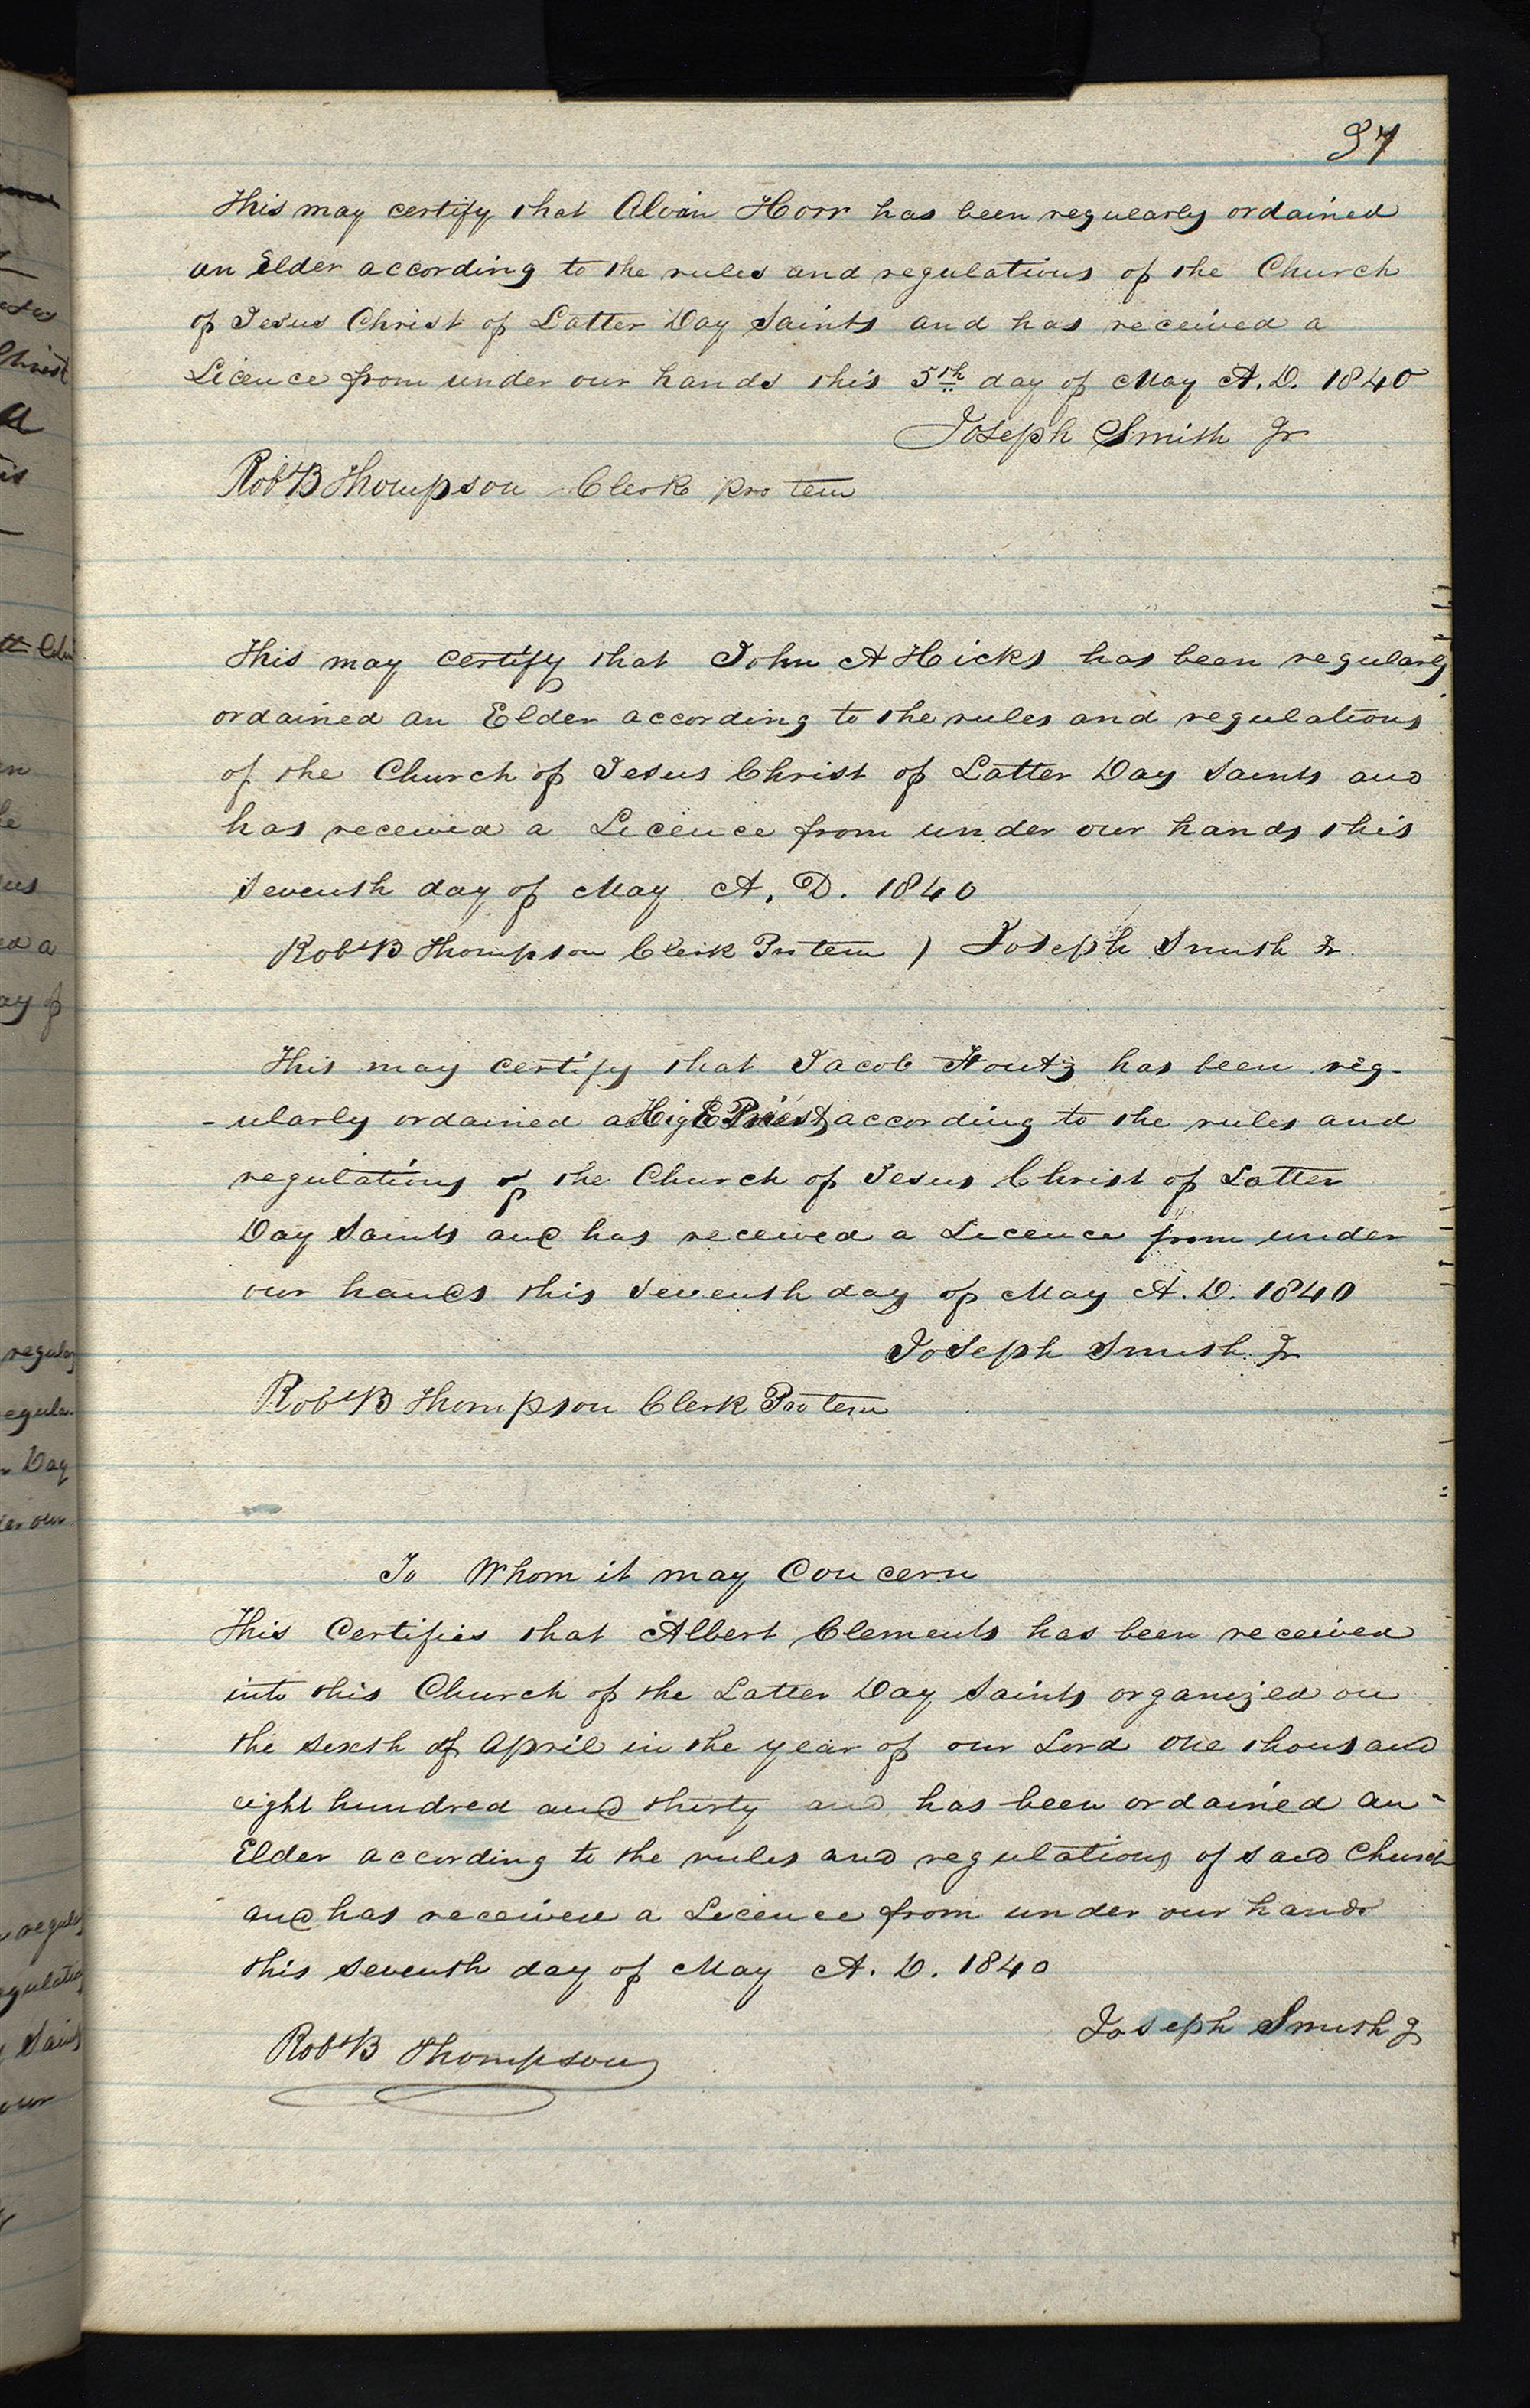 97
This may certify that Alvin Horr has been regularly ordained
an Elder according to the rules and regulations of the Church
of Jesus Christ of Latter Day Saints and has received a
Licence from under our hands this 5th day of May A.D. 1840
Joseph Smith Jr
Robt B Thompson Clerk Pro tem
This may certify that John A Hicks has been regularly
ordained an Elder according to the rules and regulations
of the Church of Jesus Christ of Latter Day Saints and
has received a Licence from under our hands this
seventh day of May A. D. 1840
Robt B Thompson Clerk Pro tem ) Joseph Smith Jr.
This may certify that Jacob Foutz has been reg-
-ularly ordained a High Priest according to the rules and
regulations of the Church of Jesus Christ of Latter
Day Saints and has received a Licence from under
our hands this seventh day of May A. D. 1840
Joseph Smith Jr
Robt B Thompson Clerk Pro tem
To Whom it may Concern
This Certifies that Albert Clements has been received
into this Church of the Latter Day Saints organized on
the sixth of April in the year of our Lord one thousand
eight hundred and thirty and has been ordained an
Elder according to the rules and regulations of said Church
and has received a Licence from under our hands
this seventh day of May A. D. 1840
Joseph Smith J
Robt B Thompson